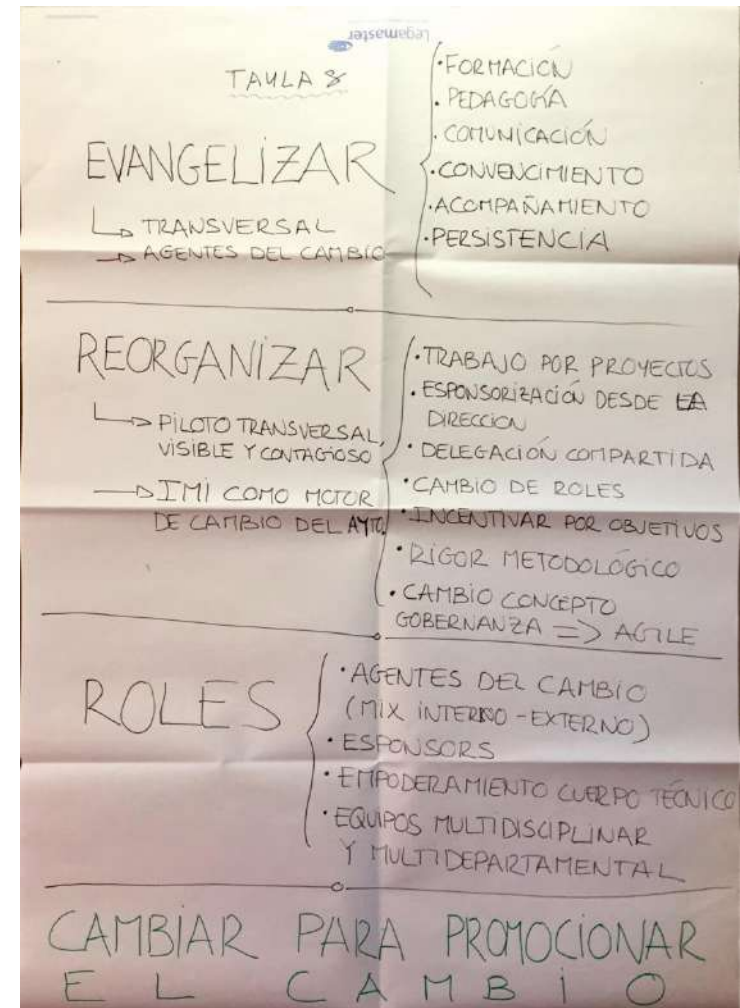 Legamaster
TAULA 8
EVANGELIZAR
TRANSVERSAL
AGENTES DEL CAMBIO
· FORMACIÓN
· PEDAGOGÍA
· COMUNICACIÓN
· CONVENCIMIENTO
· ACOMPAÑAMIENTO
· PERSISTENCIA
REORGANIZAR
PILOTO TRANSVERSAL,
VISIBLE Y CONTAGIOSO
IMI COMO MOTOR
DE CAMBIO DEL AYTO.
· TRABAJO POR PROYECTOS
· ESPONSORIZACIÓN DESDE LA
DIRECCION
· DELEGACIÓN COMPARTIDA
· CAMBIO DE ROLES
· INCENTIVAR POR OBJETIVOS
· RIGOR METODOLÓGICO
· CAMBIO CONCEPTO
GOBERNANZA => AGILE
ROLES
· AGENTES DEL CAMBIO
(MIX INTERNO - EXTERNO)
· ESPONSORS
· EMPODERAMIENTO CUERPO TÉCNICO
· EQUIPOS MULTIDISCIPLINAR
Y MULTIDEPARTAMENTAL
CAMBIAR PARA PROMOCIONAR
EL CAMBIO